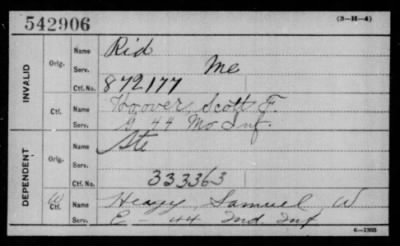 542906
(3-H-4)
INVALID
Orig.
Name Rid
Serv. Me
Ctf. No. 872177
Ctf.
Name Hoover, Scott F.
Serv. G 44 Mo Inf.
DEPENDENT
Orig.
Name Ste
Serv.
Ctf. No. 333363
Ctf.
Name Heagy, Samuel W
Serv. E 44 Ind Inf
6-1308